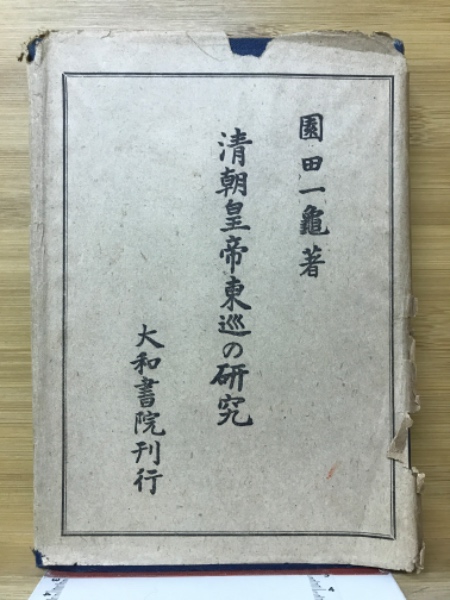 園田一龜著
清朝皇帝東巡の研究
大和書院刊行